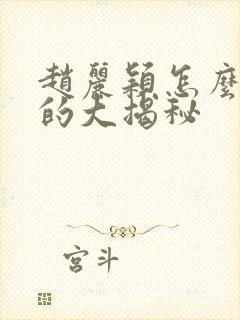 趙麗穎怎麼
的大揭秘
宮斗